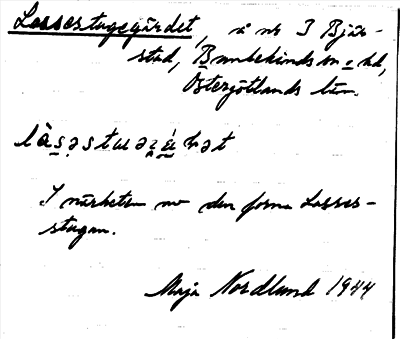 Lassestugegärdet, å nr 3 Bjär-
stad, Bankekinds sn o hd,
Östergötlands län.
I närheten av den forna Lasses-
stugan.
Maja Nordlund 1944